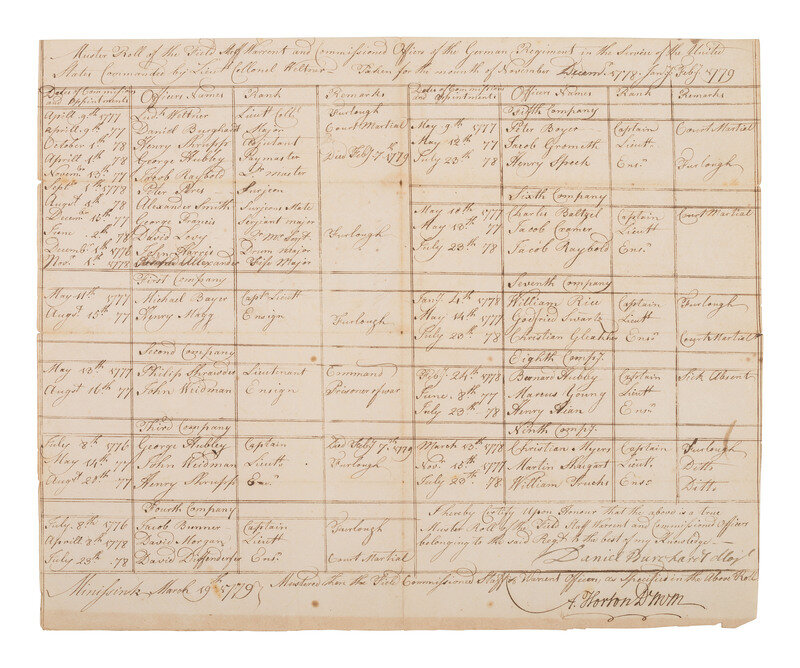 Muster Roll of the Field Staff Warrent and Commissioned Officers of the German Regiment in the Service of the United
States Commanded by Lieut. Collonel Weltner Taken for the month of November Decemr. 1778 Janry. Feby. 1779
Dates of Commissions and Appointments Officers Names Rank Remarks
Aprill 9th 1777 Ludk. Weltner Lieut. Coll. Furlough
Aprill 9th 77 Daniel Burghard Major Court Martial
October 1st 78 Henry Shrupp Adjutant
Aprill 1st 78 George Hubley Paymaster Died Feby. 7th 1779
Novemr. 13th 77 Jacob Raybold Qr. Master
Septr. 1st 1778 Peter Peres Surjeon
Augst 1st 78 Alexander Smith Surjons Mate
Decemr. 15th 77 George Francis Serjant major
June 2th 78 David Levy Qr. Mr. Sarjt. Furlough
Decembr. 6th 1776 John Harris Drum Major
Novr. 1st 1778 Allexander Fife Major
First Company
May 11th 1777 Michael Bayer Captn. Lieutt
Augst 15th 77 Henry Hagg Ensign Furlough
Second Company
May 13th 1777 Philip Shrawder Lieutenant Command
Augst 16th 77 John Weidman Ensign Prisoner of war
Third Company
July 8th 1776 George Hubley Captain Died Feby. 7th 1779
May 14th 77 John Weidman Lieutt. Furlough
Augst 20th 77 Henry Shrupp Ens.
Fourth Company
July 8th 1776 Jacob Bunner Captain Furlough
Aprill 8th 1778 David Morgan Lieutt
July 23th 78 David Diffenderfer Ens. Court Martial
Dates of Commissions and Appointments Officers Names Rank Remarks
Fifth Company
May 9th 1777 Peter Boyer Captain Court Martial
May 12th 77 Jacob Grometh Lieutt
July 23th 78 Henry Speck Ens. Furlough
Sixth Company
May 10th 1777 Charles Baltzel Captain Court Martial
May 13th 77 Jacob Cramer Lieutt
July 23th 78 Jacob Raybold Ens.
Seventh Company
Jany. 4th 1778 William Rice Captain Furlough
May 14th 1777 Godfried Swartz Lieutt
July 23th 78 Christian Glickner Ens. Court Martial
Eighth Compy.
Feby. 24th 1778 Bernard Hubley Captain Sick Absent
June 8th 77 Marcus Young Lieutt
July 23th 78 Henry Hian Ens.
Ninth Compy.
March 13th 1778 Christian Myers Captain Furlough
Novr. 15th 1777 Martin Shugart Lieut. Ditto
July 23th 78 William Trucks Ens. Ditto
I hereby Certify Upon Honour that the above is a true
Muster Roll of the Field Staff Warent and Commissioned Officers
belonging to the said Regt. to the best of my Knowledge
Daniel Burchart Majr.
Minissink March 19th 1779 Mustered then the Field Commissioned Staff & Warent Officers, as Specified in the Above Roll
A. Horton D M M